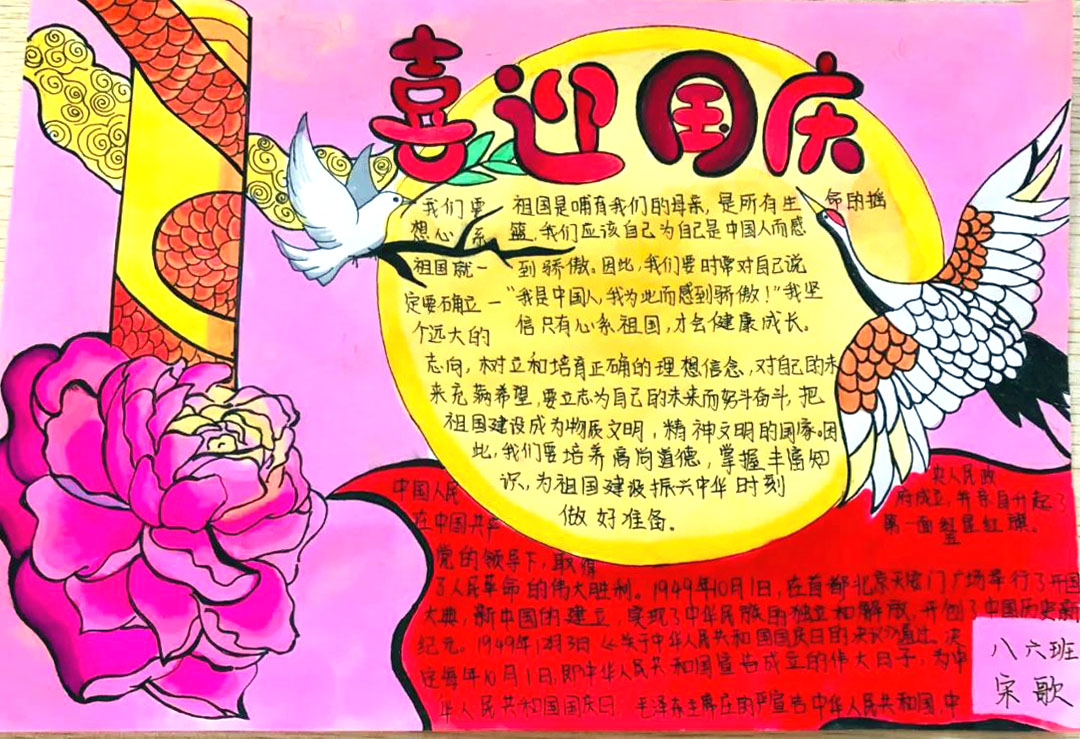 喜迎国庆
我们要 祖国是哺育我们的母亲，是所有生 命的摇
想心系 篮，我们应该自己为自己是中国人而感
祖国就一 到骄傲。因此，我们要时常对自己说
定要确立一 “我是中国人，我为此而感到骄傲！”我坚
个远大的 信只有心系祖国，才会健康成长。
志向，树立和培育正确的理想信念，对自己的未
来充满希望，要立志为自己的未来而努斗奋斗，把
祖国建设成为物质文明，精神文明的国家。因
此，我们要培养高尚道德，掌握丰富知
识，为祖国建设振兴中华时刻
做好准备。
中国人民
在中国共产
党的领导下，取得
了人民革命的伟大胜利。1949年10月1日，在首都北京天安门广场举行了开国
大典，新中国的建立，实现了中华民族的独立和解放，开创了中国历史新
纪元。1949年12月3日《关于中华人民共和国国庆日的决议》通过，决
定每年10月1日，即中华人民共和国宣告成立的伟大日子，为中
华人民共和国国庆日 毛泽东主席庄的严宣告中华人民共和国，中
央人民政
府成立，并亲自升起了
第一面 星红旗。
八六班
宋歌